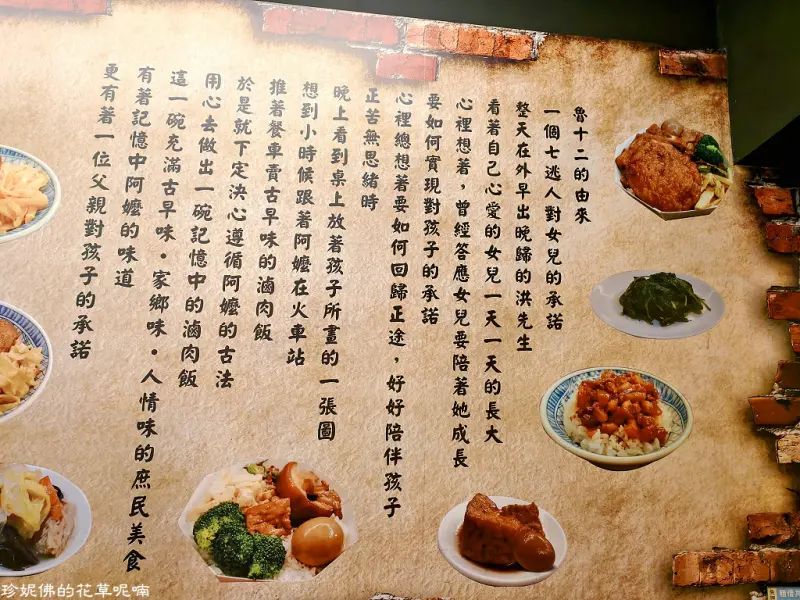 魯十二的由來
一個七逃人對女兒的承諾
整天在外早出晚歸的洪先生
看著自己心愛的女兒一天一天的長大
心裡想著，曾經答應女兒要陪著她成長
要如何實現對孩子的承諾
心裡總想著要如何回歸正途，好好陪伴孩子
正苦無思緒時
晚上看到桌上放著孩子所畫的一張圖
想到小時候跟著阿嬤在火車站
推著餐車賣古早味的滷肉飯
於是就下定決心遵循阿嬤的古法
用心去做出一碗記憶中的滷肉飯
這一碗充滿古早味．家鄉味．人情味的庶民美食
有著記憶中阿嬤的味道
更有著一位父親對孩子的承諾
珍妮佛的花草呢喃